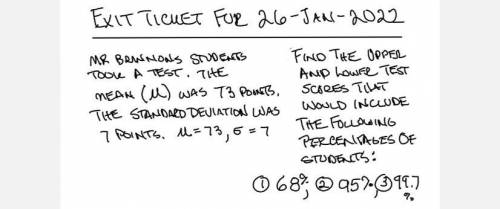 EXIT TICKET FOR 26-JAN-2022
MR BRUNNONS STUDENTS
TOOK A TEST. THE
MEAN (μ) WAS 73 POINTS.
THE STANDARD DEVIATION WAS
7 POINTS. μ=73, σ=7
FIND THE UPPER
AND LOWER TEST
SCORES THAT
WOULD INCLUDE
THE FOLLOWING
PERCENTAGES OF
STUDENTS:
① 68%, ② 95%, ③ 99.7
%